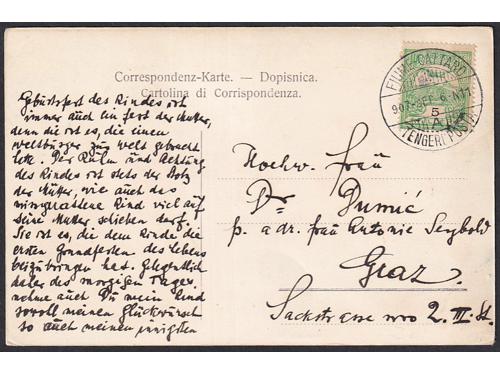 Correspondenz-Karte. — Dopisnica.
Cartolina di Corrispondenza.
FIUME-CATTARO
907 SEP 6 N11
5
TENGERI POSTA
Geburtsfest des Kindes ist
immer auch ein fest der Mutter,
denn die ist es, die einen
weltbürger zur welt gebracht
hat. Der Ruhm und Achtung
des Kindes ist stets der Stolz
der Mutter, wie auch das
Kind viel auf
seine Mutter halten darf.
Sie ist es, die dem Kinde die
ersten Grundfesten des Lebens
beizubringen hat. Gelegentlich
daher des morgigen Tages
nehme auch Du mein Kind
sowohl meinen Glückwunsch
so auch meinen innigsten
Hochw. frau
Dr Dumić
p. adr. frau Antonie Seybold
Graz.
Sackstrasse nro 2. III. St.